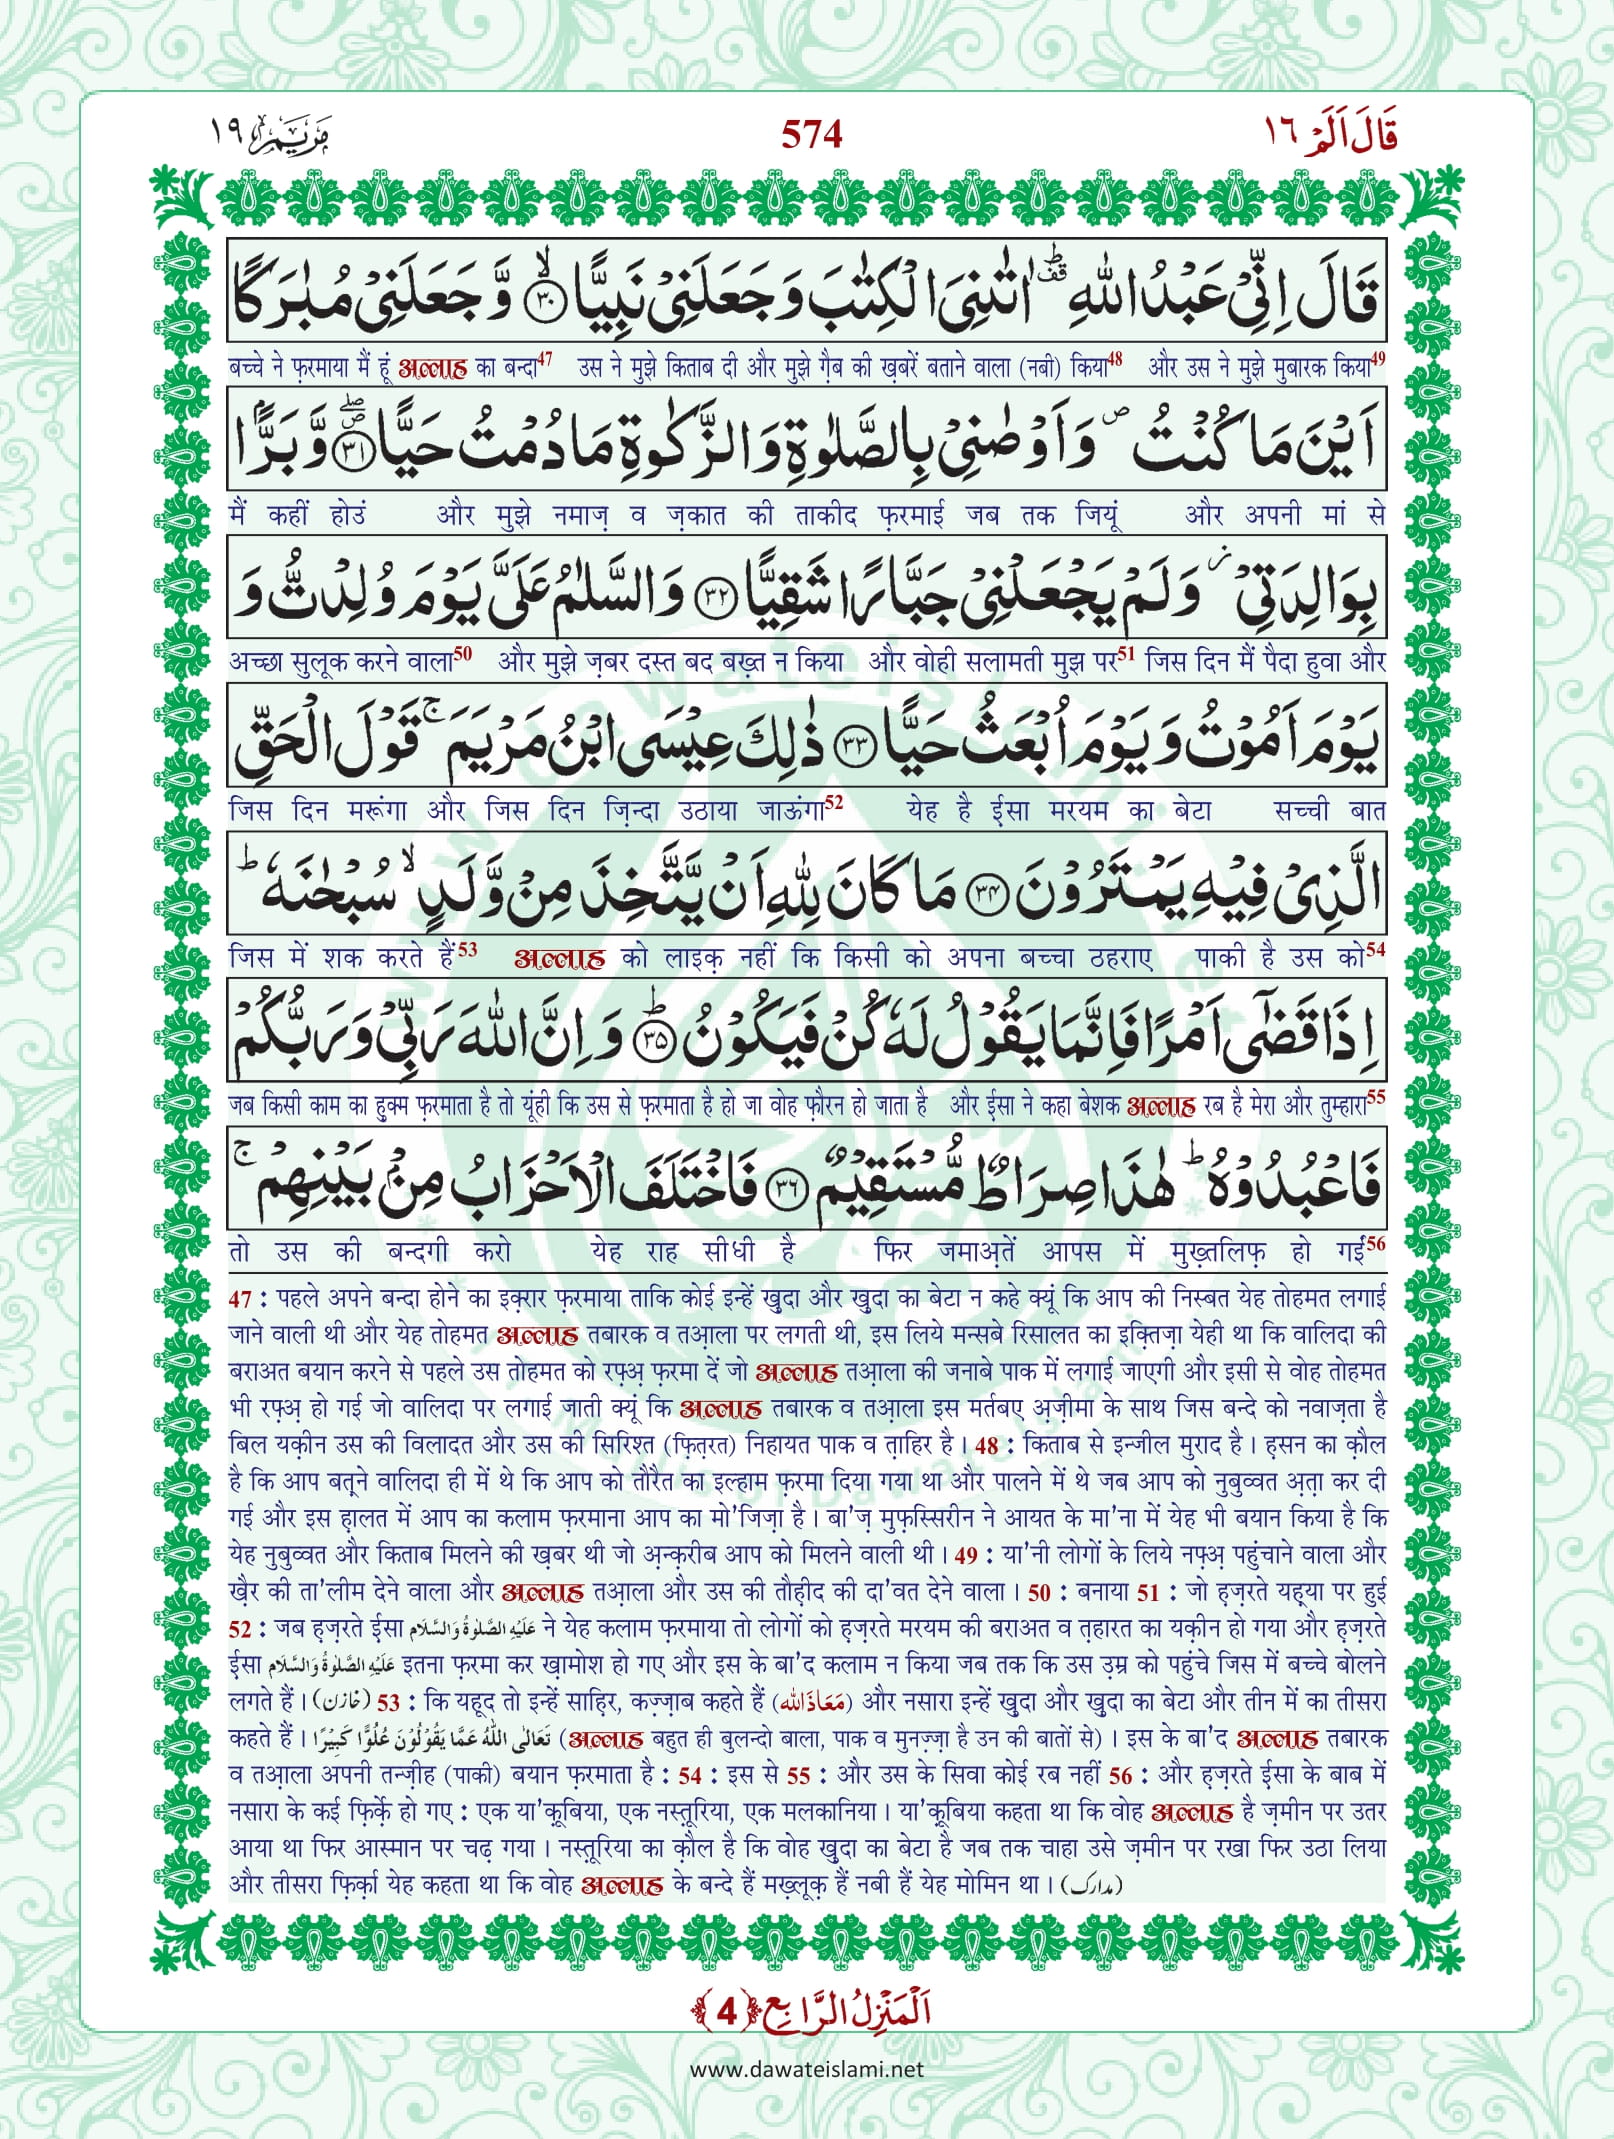 مَرْيَم ١٩ 574 قَالَ اَلَمْ ١٦
قَالَ اِنِّیْ عَبْدُ اللّٰهِ ؕ۫ اٰتٰىنِیَ الْكِتٰبَ وَ جَعَلَنِیْ نَبِیًّا ۙ﴿۳۰﴾ وَّ جَعَلَنِیْ مُبٰرَكًا
बच्चे ने फ़रमाया मैं हूं अल्लाह का बन्दा47 उस ने मुझे किताब दी और मुझे ग़ैब की ख़बरें बताने वाला (नबी) किया48 और उस ने मुझे मुबारक किया49
اَیْنَ مَا كُنْتُ ۪ وَ اَوْصٰنِیْ بِالصَّلٰوةِ وَ الزَّكٰوةِ مَا دُمْتُ حَیًّا ﴿۳۱﴾۪ۖ وَّ بَرًّۢا
मैं कहीं होउं और मुझे नमाज़ व ज़कात की ताकीद फ़रमाई जब तक जियूं और अपनी मां से
بِوَالِدَتِیْ ؗ وَ لَمْ یَجْعَلْنِیْ جَبَّارًا شَقِیًّا ﴿۳۲﴾ وَ السَّلٰمُ عَلَیَّ یَوْمَ وُلِدْتُّ وَ
अच्छा सुलूक करने वाला50 और मुझे ज़बर दस्त बद बख़्त न किया और वोही सलामती मुझ पर51 जिस दिन मैं पैदा हुवा और
یَوْمَ اَمُوْتُ وَ یَوْمَ اُبْعَثُ حَیًّا ﴿۳۳﴾ ذٰلِكَ عِیْسَى ابْنُ مَرْیَمَ ۚ قَوْلَ الْحَقِّ
जिस दिन मरूंगा और जिस दिन ज़िन्दा उठाया जाऊंगा52 येह है ईसा मरयम का बेटा सच्ची बात
الَّذِیْ فِیْهِ یَمْتَرُوْنَ ﴿۳۴﴾ مَا كَانَ لِلّٰهِ اَنْ یَّتَّخِذَ مِنْ وَّلَدٍ ۙ سُبْحٰنَهٗ ؕ
जिस में शक करते हैं53 अल्लाह को लाइक़ नहीं कि किसी को अपना बच्चा ठहराए पाकी है उस को54
اِذَا قَضٰۤى اَمْرًا فَاِنَّمَا یَقُوْلُ لَهٗ كُنْ فَیَكُوْنُ ﴿۳۵﴾ؕ وَ اِنَّ اللّٰهَ رَبِّیْ وَ رَبُّكُمْ
जब किसी काम का हुक्म फ़रमाता है तो यूंही कि उस से फ़रमाता है हो जा वोह फ़ौरन हो जाता है और ईसा ने कहा बेशक अल्लाह रब है मेरा और तुम्हारा55
فَاعْبُدُوْهُ ؕ هٰذَا صِرَاطٌ مُّسْتَقِیْمٌ ﴿۳۶﴾ فَاخْتَلَفَ الْاَحْزَابُ مِنْۢ بَیْنِهِمْ ۚ
तो उस की बन्दगी करो येह राह सीधी है फिर जमाअ़तें आपस में मुख़्तलिफ़ हो गईं56
47 : पहले अपने बन्दा होने का इक़्रार फ़रमाया ताकि कोई इन्हें ख़ुदा और ख़ुदा का बेटा न कहे क्यूं कि आप की निस्बत येह तोहमत लगाई
जाने वाली थी और येह तोहमत अल्लाह तबारक व तआ़ला पर लगती थी, इस लिये मन्सबे रिसालत का इक़्तिज़ा येही था कि वालिदा की
बराअत बयान करने से पहले उस तोहमत को रफ़्अ़ फ़रमा दें जो अल्लाह तआ़ला की जनाबे पाक में लगाई जाएगी और इसी से वोह तोहमत
भी रफ़्अ़ हो गई जो वालिदा पर लगाई जाती क्यूं कि अल्लाह तबारक व तआ़ला इस मर्तबए अ़ज़ीमा के साथ जिस बन्दे को नवाज़ता है
बिल यक़ीन उस की विलादत और उस की सिरिश्त (फ़ित़रत) निहायत पाक व त़ाहिर है। 48 : किताब से इन्जील मुराद है। ह़सन का क़ौल
है कि आप बत़्ने वालिदा ही में थे कि आप को तौरैत का इल्हाम फ़रमा दिया गया था और पालने में थे जब आप को नुबुव्वत अ़त़ा कर दी
गई और इस ह़ालत में आप का कलाम फ़रमाना आप का मो'जिज़ा है। बा'ज़ मुफ़स्सिरीन ने आयत के मा'ना में येह भी बयान किया है कि
येह नुबुव्वत और किताब मिलने की ख़बर थी जो अ़न्क़रीब आप को मिलने वाली थी। 49 : या'नी लोगों के लिये नफ़्अ़ पहुंचाने वाला और
ख़ैर की ता'लीम देने वाला और अल्लाह तआ़ला और उस की तौह़ीद की दा'वत देने वाला। 50 : बनाया 51 : जो ह़ज़रते यह़्या पर हुई
52 : जब ह़ज़रते ईसा عَلَيْهِ الصَّلٰوةُ وَالسَّلَام ने येह कलाम फ़रमाया तो लोगों को ह़ज़रते मरयम की बराअत व त़हारत का यक़ीन हो गया और ह़ज़रते
ईसा عَلَيْهِ الصَّلٰوةُ وَالسَّلَام इतना फ़रमा कर ख़ामोश हो गए और इस के बा'द कलाम न किया जब तक कि उस उ़म्र को पहुंचे जिस में बच्चे बोलने
लगते हैं। (خازن) 53 : कि यहूद तो इन्हें साह़िर, कज़्ज़ाब कहते हैं (مَعَاذَ اللّٰه) और नसारा इन्हें ख़ुदा और ख़ुदा का बेटा और तीन में का तीसरा
कहते हैं। تَعَالٰى اللّٰهُ عَمَّا يَقُوْلُوْنَ عُلُوًّا كَبِيْرًا (अल्लाह बहुत ही बुलन्दो बाला, पाक व मुनज़्ज़ा है उन की बातों से)। इस के बा'द अल्लाह तबारक
व तआ़ला अपनी तन्ज़ीह (पाकी) बयान फ़रमाता है : 54 : इस से 55 : और उस के सिवा कोई रब नहीं 56 : और ह़ज़रते ईसा के बाब में
नसारा के कई फ़िर्क़े हो गए : एक या'क़ूबिया, एक नस्त़ूरिया, एक मलकानिया। या'क़ूबिया कहता था कि वोह अल्लाह है ज़मीन पर उतर
आया था फिर आस्मान पर चढ़ गया। नस्त़ूरिया का क़ौल है कि वोह ख़ुदा का बेटा है जब तक चाहा उसे ज़मीन पर रखा फिर उठा लिया
और तीसरा फ़िर्क़ा येह कहता था कि वोह अल्लाह के बन्दे हैं मख़्लूक़ हैं नबी हैं येह मोमिन था। (مدارك)
اَلْمَنْزِلُ الرَّابِع ﴿4﴾
www.dawateislami.net